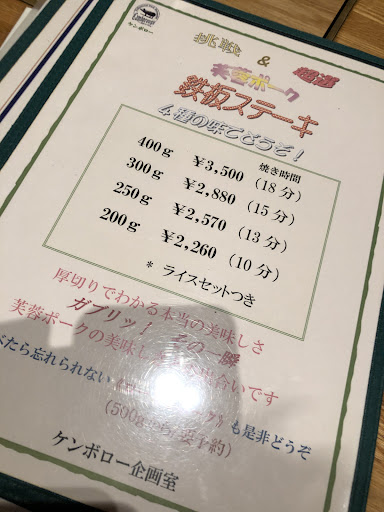 ケンボロー
挑戦 & 厳選
芙蓉ポーク
鉄板ステーキ
4種の味でどうぞ!
焼き時間
400g ¥3,500 (18分)
300g ¥2,880 (15分)
250g ¥2,570 (13分)
200g ¥2,260 (10分)
* ライスセットつき
厚切りでわかる本当の美味しさ
ガブリッ! その一瞬
芙蓉ポークの美味し 出合いです
べたら忘れられない も是非どうぞ
(500g 要予約)
ケンボロー企画室